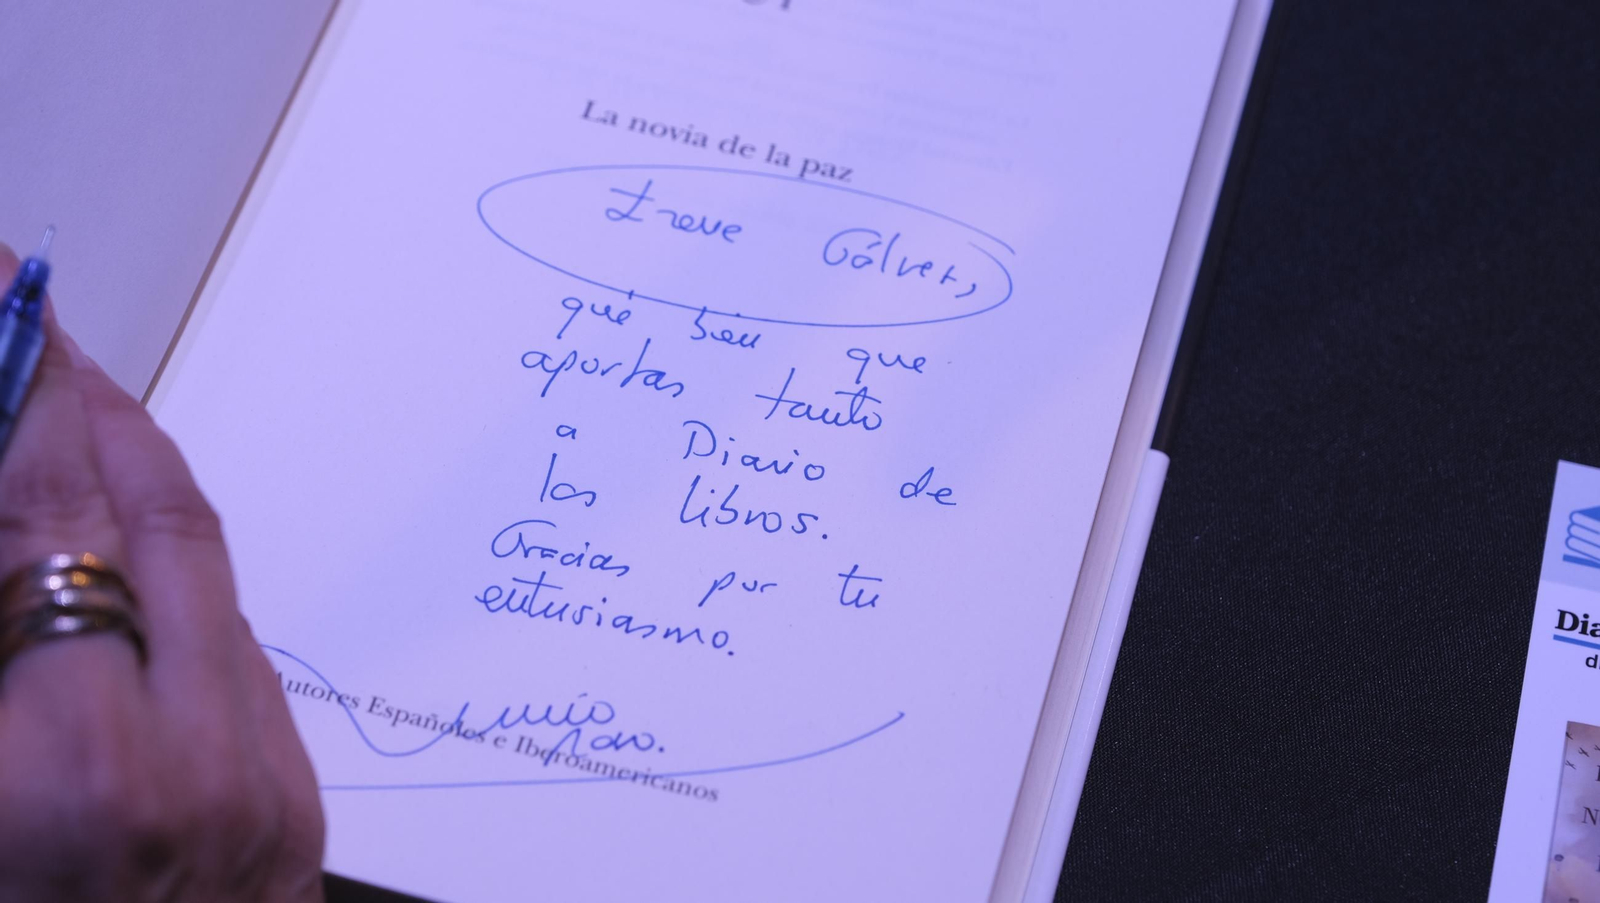 La novia de la paz
Irene Gálvez,
qué bien que
aportas tanto
a Diario de
los libros.
Gracias por tu
entusiasmo.
Autores Españoles e Iberoamericanos
Dia